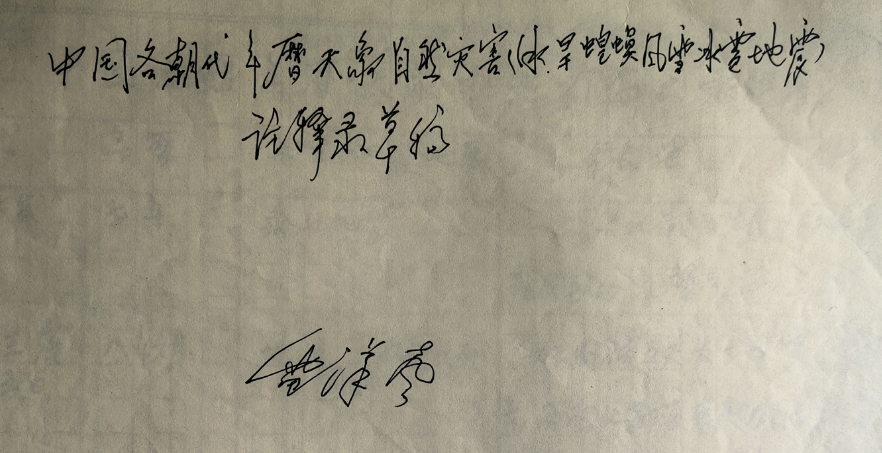 中国各朝代年曆天象自然灾害(水.旱蝗螟风雪冰雹地震)
註释录草稿